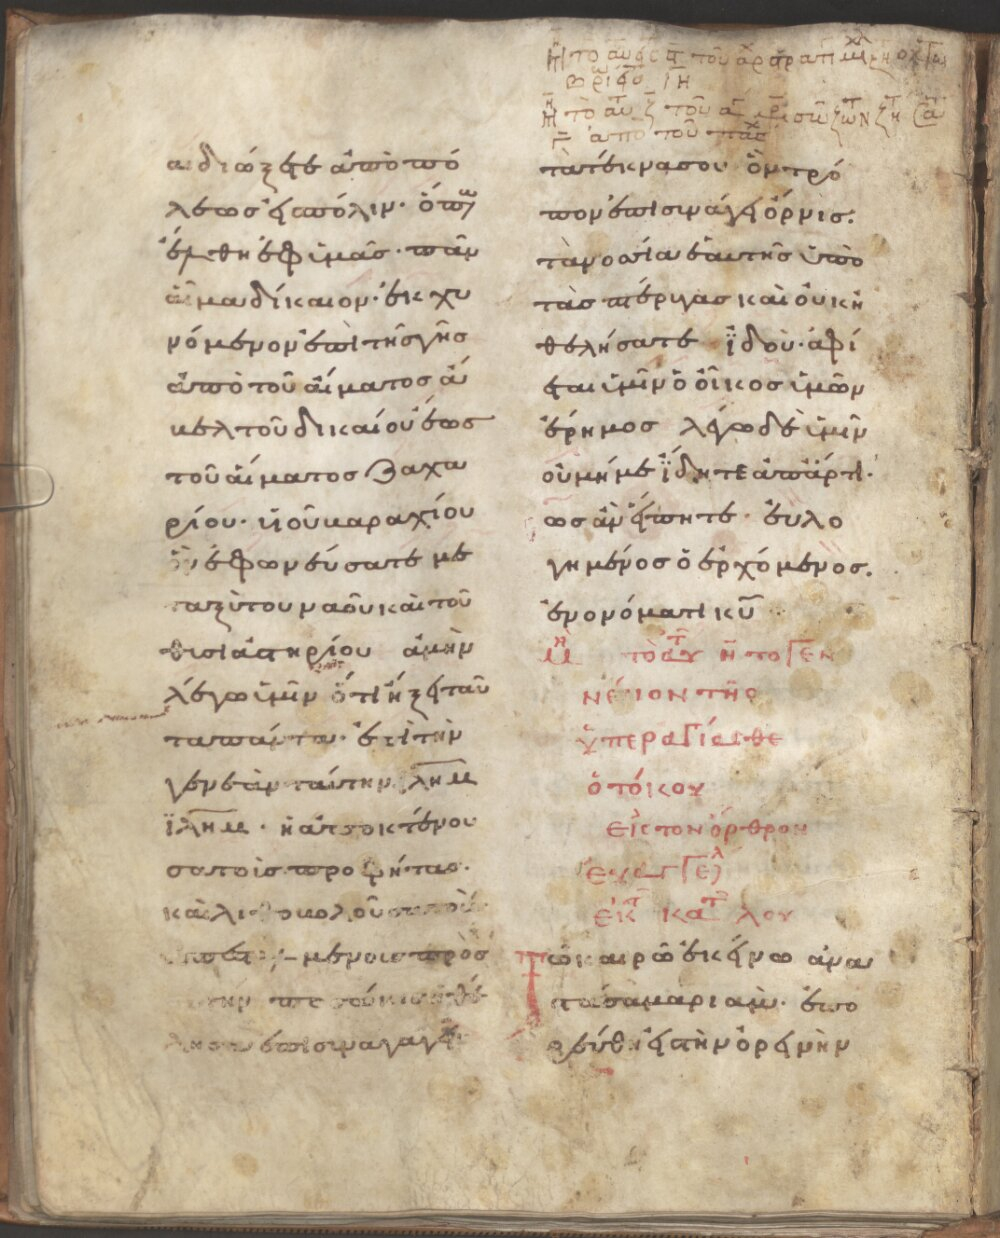 αι διώξετε ἀπὸ πό
λεως εἰς πόλιν· ὅπως
ἔλθη ἐφ ὑμᾶς· πᾶν
αἷμα δίκαιον· ἐκχυ
νόμενον ἐπὶ τῆς γῆς
ἀπὸ τοῦ αἵματος ἄ
μελ τοῦ δικαίου ἕως
τοῦ αἵματος Ζαχα
ρίου· ϋιοῦ μαραχίου
ὃν ἐφωνεύσατε με
ταξὺ του ναοῦ καὶ τοῦ
θισιαστηρίου ἀμὴν
λέγω ὑμῖν ὅτι ἥξει ταῦ
τα πάντα· ἐπὶ τὴν
γενεὰν ταύτην ϊλημ
ϊλημ· ἡ ἀποκτένου
σα τοὺς προφήτας·
καὶ λιθοβολοῦσα τοὺς
ἀπεσταλμένοις πρὸς
αὐτήν ποσάκις ἠθέ
λησα ἐπισιναγαγεῖν
τὰ τέκνα σου ὃν τρό
πον ἐπισινάγει ὄρνις.
τὰ νοσία ἑαυτῆς ὑπὸ
τὰς πτέρυγας καὶ οὐκ ἠ
θελήσατε ϊδοὺ· ἀφί
εται ὑμῖν ὁ οἶκος ὑμῶν
ἔρημος λέγω δὲ ὑμῖν
οὐ μή με ΐδητε ἀπάρτι·
ἕως ἂν εἴπητε· ἐυλο
γημένος ὁ ἐρχόμενος.
ἐν ονόματι κυ
Μη τὸ αυτ η το γεν
νέσιον τῆς
ὑπεραγίας θε
οτόκου
εἰς τον ὄρθρον
ἐυαγγελ
ἐκ τ κατ λου
Τῶ καιρῶ ἐκείνω ἀνα
στάσα μαριαμ· ἐπο
ρεύθη εἰς τὴν ὀρεινὴν